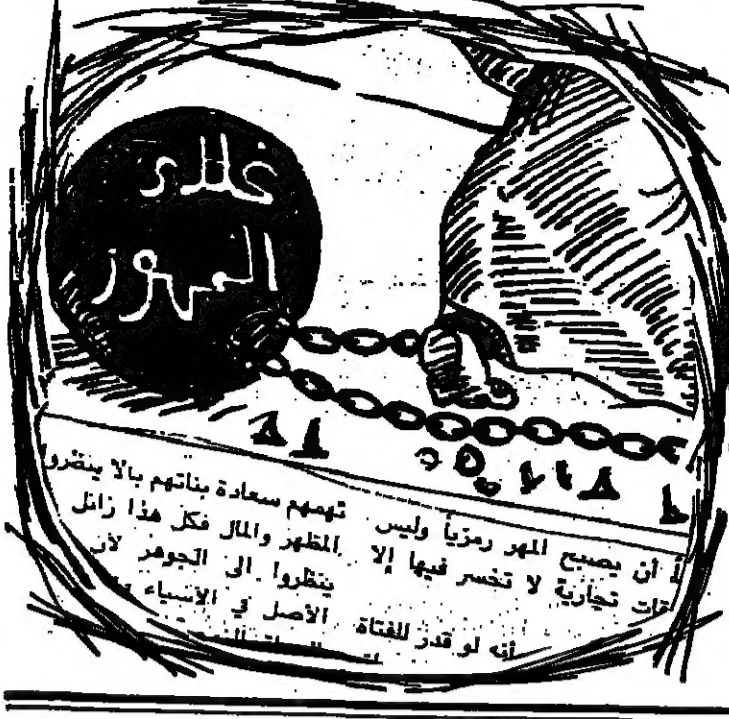 غلاء
المهور
أن يصبح المهر رمزياً وليس
تجارية لا تخسر فيها إلا
أنه لو قدر للفتاة
تهمهم سعادة بناتهم بالا ينظروا
المظهر والمال فكل هذا زائل
ينظروا الى الجوهر لأن
الأصل في الأشياء